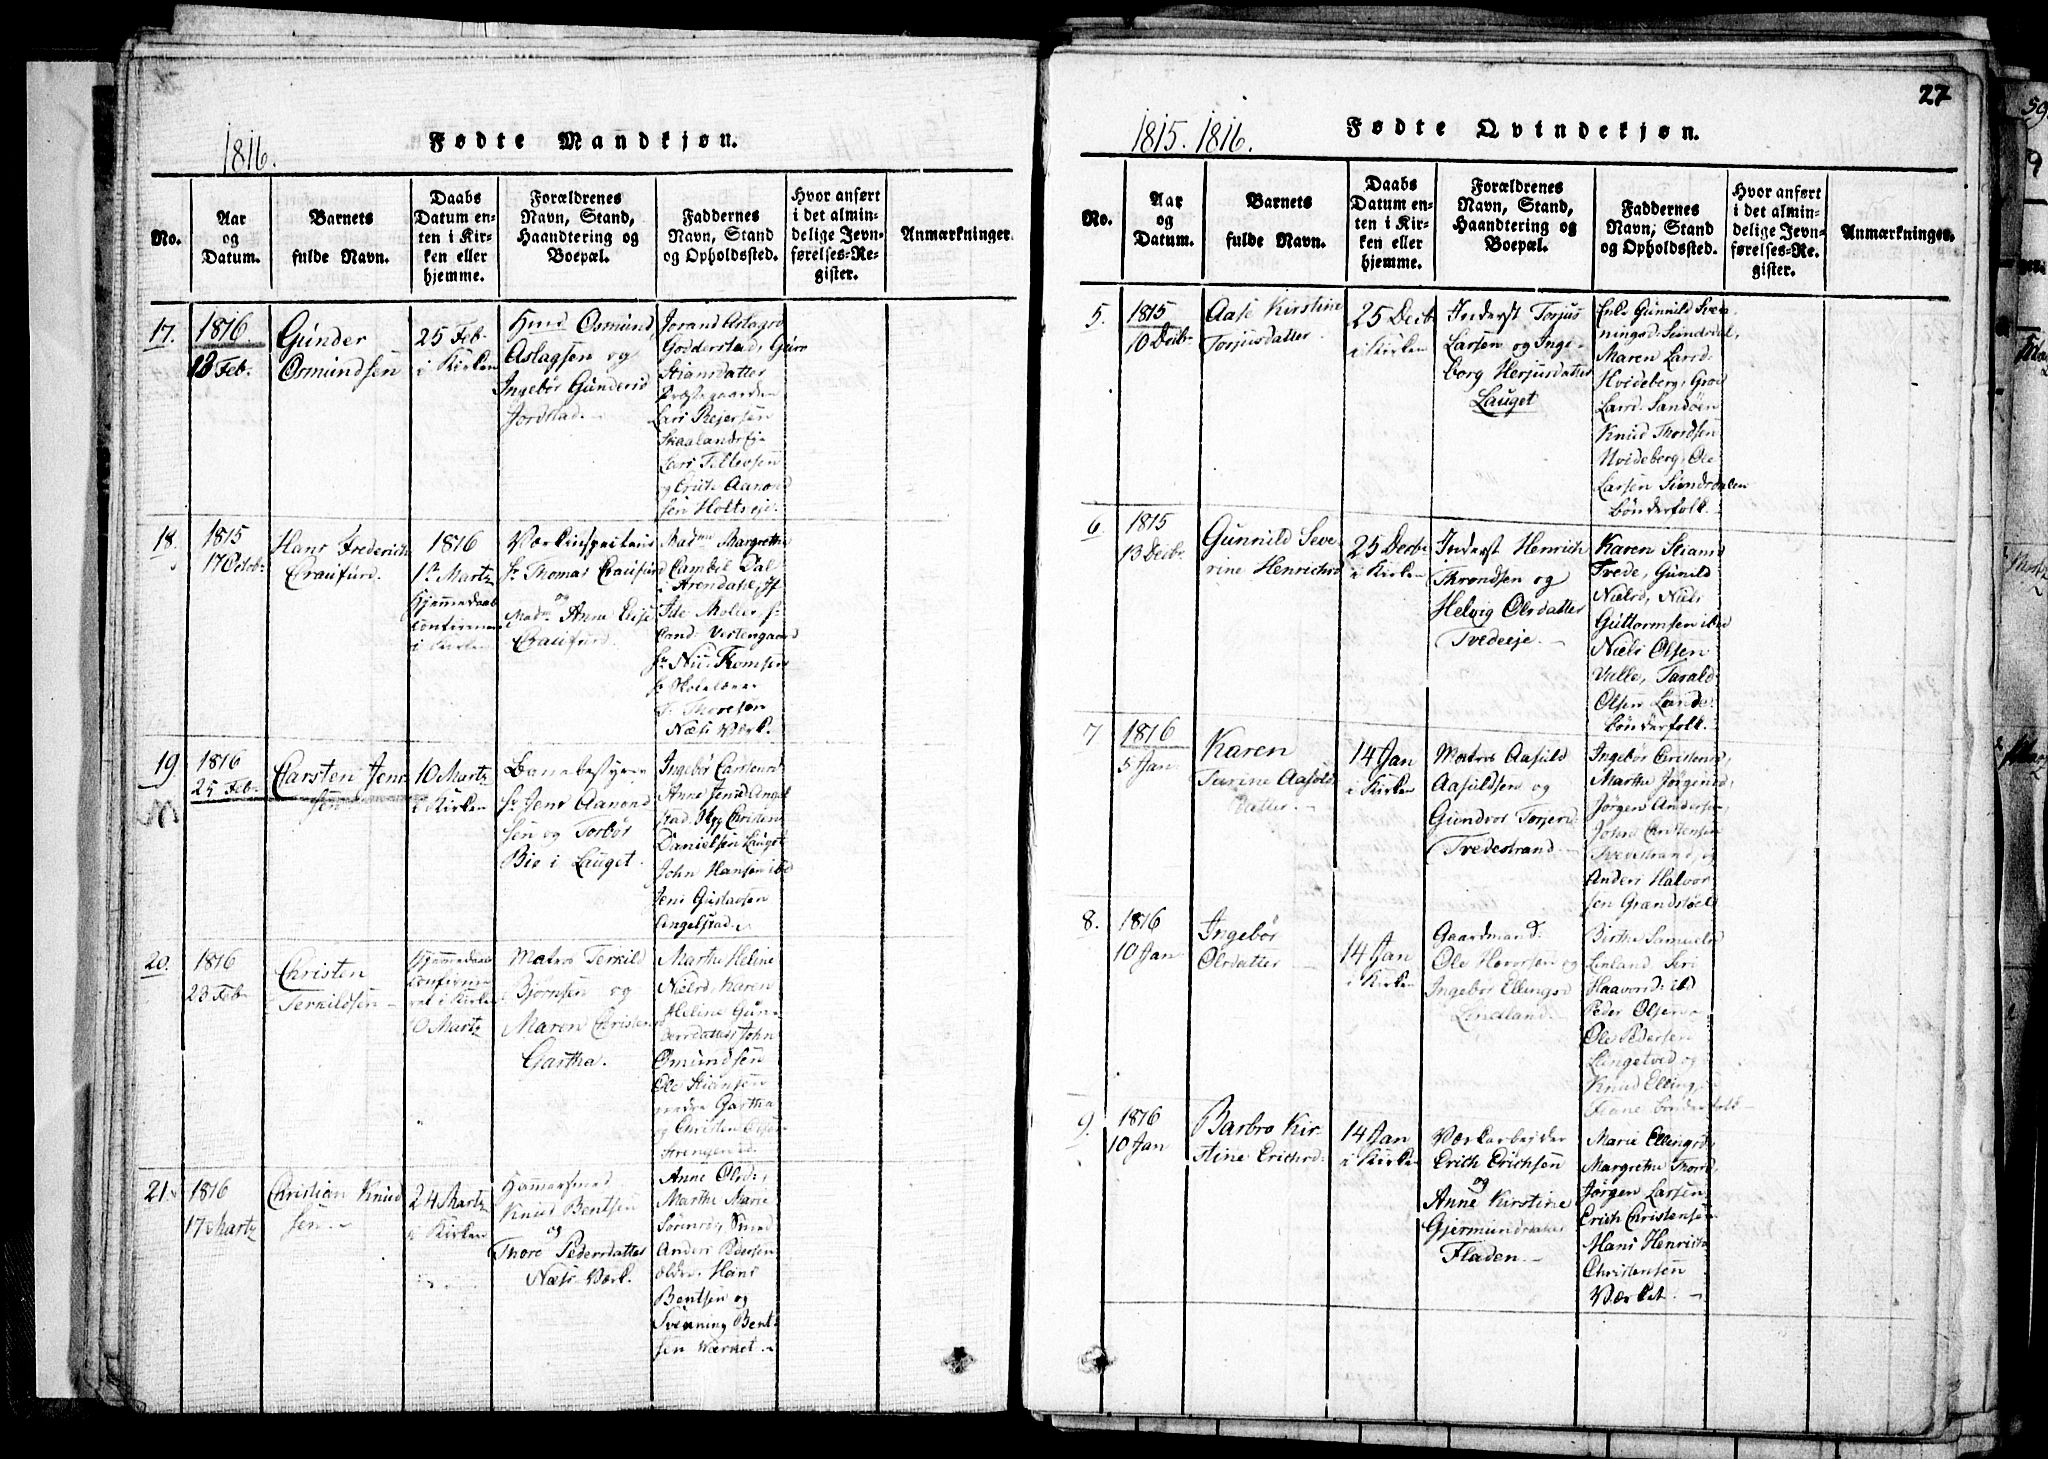 1816.
Fødte Mandkjøn.
No.
Aar
og
Datum.
Barnets
fulde Navn.
Daabs
Datum en-
ten i Kir-
ken eller
hjemme.
Forældrenes
Navn, Stand,
Haandtering og
Boepæl.
Faddernes
Navn, Stand
og Opholdssted.
Hvor anført
i det almin-
delige Jevn-
førelses-Re-
gister.
Anmærkninger.
17.
1816
13 Feb.
Gunder
Osmundsen
25 Feb.
i Kirken
Knud Osmund
Aslagsen og
Ingebør Gundersd
Jordstad.
Jorand Aslagsd
Godderstad, Guro
Stiansdatter
Præstegaarden
Lars Reiersen
Skaalandseje
Lars Tellevsen
og Aanond
sen Holtseje.
18.
1815
17 Octob
Hans Frederich
Craufurd.
1816
1n Martz
Hjemmedaab
confirmeret
i Kirken
Værkinspecteur
Hr Thomas Craufurd
og
Madm Anne Elise
Craufurd.
Madme Margrethe
Cambel Dal
i Arendahl, Hr
Ide Molde
Vestergaard
Hr Niels Thomsen
Hr Skolelærer
Thoresen
Næs Værk.
19
1816
25 Feb.
Carsten Jens
sen
10 Martz
i Kirken
Banebestyrer
Hr Jens Aanond
sen og Torbør
Bie i Lauget.
Ingebør Carstensd
Anne Jensd Angel
stad. Christen
Danielsen Lauget
John Hansen ibd
Jens Gustavsen
Lengelstad.
20.
1816
23 Feb
Christen
Terkildsen
Hjemmedaab
Confirme
ret i Kirken
10 Martz
Matros Terkild
Bjørnsen og
Maren Christens
Gartha.
Marthe Heline
Nielsd, Karen
Heline Gun-
dersdatter John
Omundsen
Ole Stiansen
nedre Gartha
og Christen
21.
1816
17 Martz
Christian Knud
sen.
24 Martz
i Kirken
Hammersmed
Knud Bentsen
og
Thore Pedersdatter
Næs Værk.
Anne Olsd:,
Marthe Marie
Sørensd, Smed
Anders Pedersen
ældre. Hans
Bentsen og
Svenning Bent
sen Værket.
27
1815. 1816.
Fødte Qvindekjøn.
No.
Aar
og
Datum.
Barnets
fulde Navn.
Daabs
Datum en-
ten i Kir-
ken eller
hjemme.
Forældrenes
Navn, Stand,
Haandtering og
Boepæl.
Faddernes
Navn, Stand
og Opholdssted.
Hvor anført
i det almin-
delige Jevn-
førelses-Re-
gister.
Anmærkninger.
5.
1815
10 Decbr
Aase Kirstine
Torjusdatter
25 Decbr
i Kirken
Inderst Torjus
Larsen og Inge-
borg Herjusdatter
Lauget
Enke Gunnild Sven
ningsd: Sundsdal,
Maren Larsd:
Hvideberg, Groe
Larsd: Sandøen
Knud Thordsen
Hvideberg, Ole
Larsen Sundsdalen
bønderfolk.
6
1815
13 Decbr
Gunnild Seve
rine Henrichsd
25 Decbr
i Kirken
Inderst Henrich
Throndsen og
Helvig Olsdatter
Tvedeeje.
Karen Stiansd
Tvede, Gunild
Nielsd, Niels
Guttormsen ibd
Niels Olsen
Ulle, Tarald
Olsen Lunde
bønderfolk.
7
1816
5 Jan.
Karen
Terine Aasulds
datter.
14 Jan
i Kirken
Matros Aasuld
Aasuldsen og
Gundvor Torjersd
Tvedestrand.
Ingebør Christensd,
Marthe Jørgensd,
Jørgen Andersen,
Josva Christensen
Tvedestrand, og
Anders Halvor
sen Grændstøel
8.
1816
10 Jan
Ingebør
Olsdatter
14 Jan
i Kirken
Gaardmand:
Ole Hovorsen og
Ingebør Ellingsd
Lindland.
Birthe Samuelsd
Linland. Siri
Haavorsd: ibd
Peder Olsen
Ole Pedersen
Lengetved og
Knud Elling
Fiane bønderfolk
9.
1816
10 Jan
Barbro Kir-
stine Erichsd.
14 Jan
i Kirken
Værkarbeider
Erich Erichsen
og
Anne Kirstine
Gjermundsdatter
Fladen.
Marie Ellingsd.
Margrethe Thorsd,
Jørgen Larsen
Erich Christensen
Hans Henrich
Christensen
Værket.